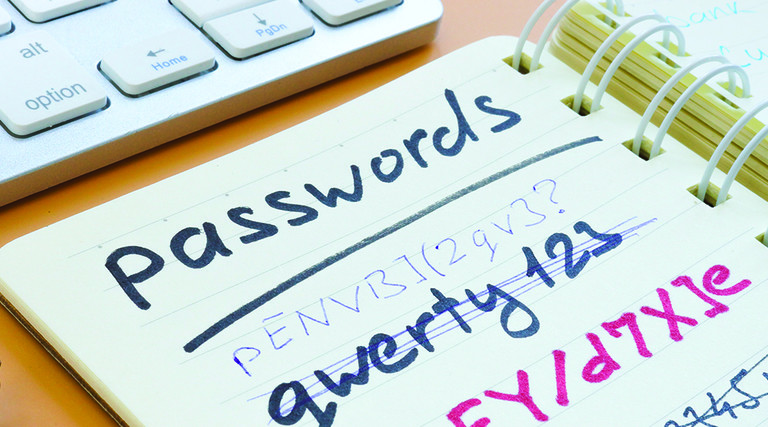 alt
option
Home
PgDn
Passwords
PENVB](2qv3?
qwerty 123
FY/d7X]e